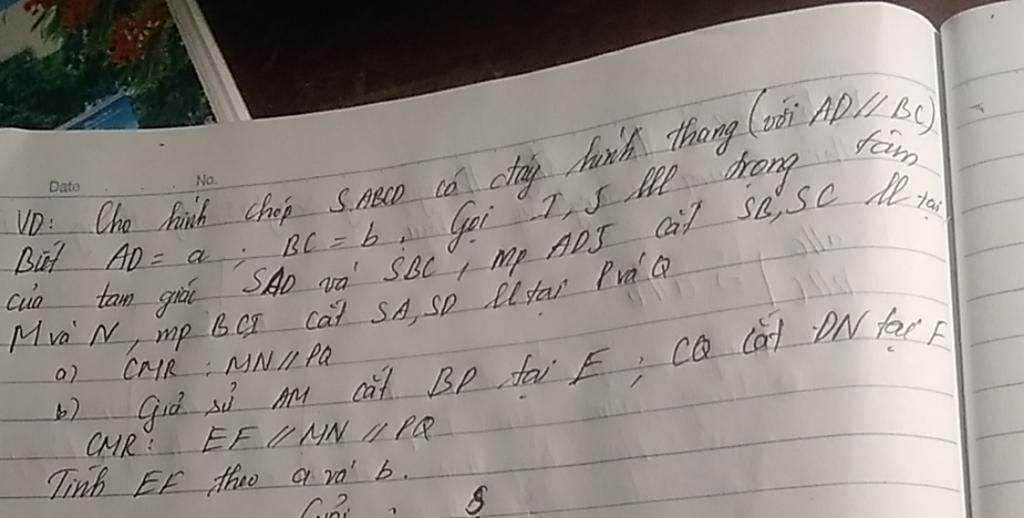 Date No.
VD: Cho hình chóp S.ABCD có đáy hình thang (với AD // BC)
Biết AD = a ; BC = b. Gọi I, J lll trọng tâm
của tam giác SAD và SBC, mp ADJ cắt SB, SC ll tại
M và N, mp BCI cắt SA, SD ll tại P và Q
a) CMR : MN // PQ
b) Giả sử AM cắt BP tại E ; CQ cắt DN tại F
CMR : EF // MN // PQ
Tính EF theo a và b.
Giải :
S